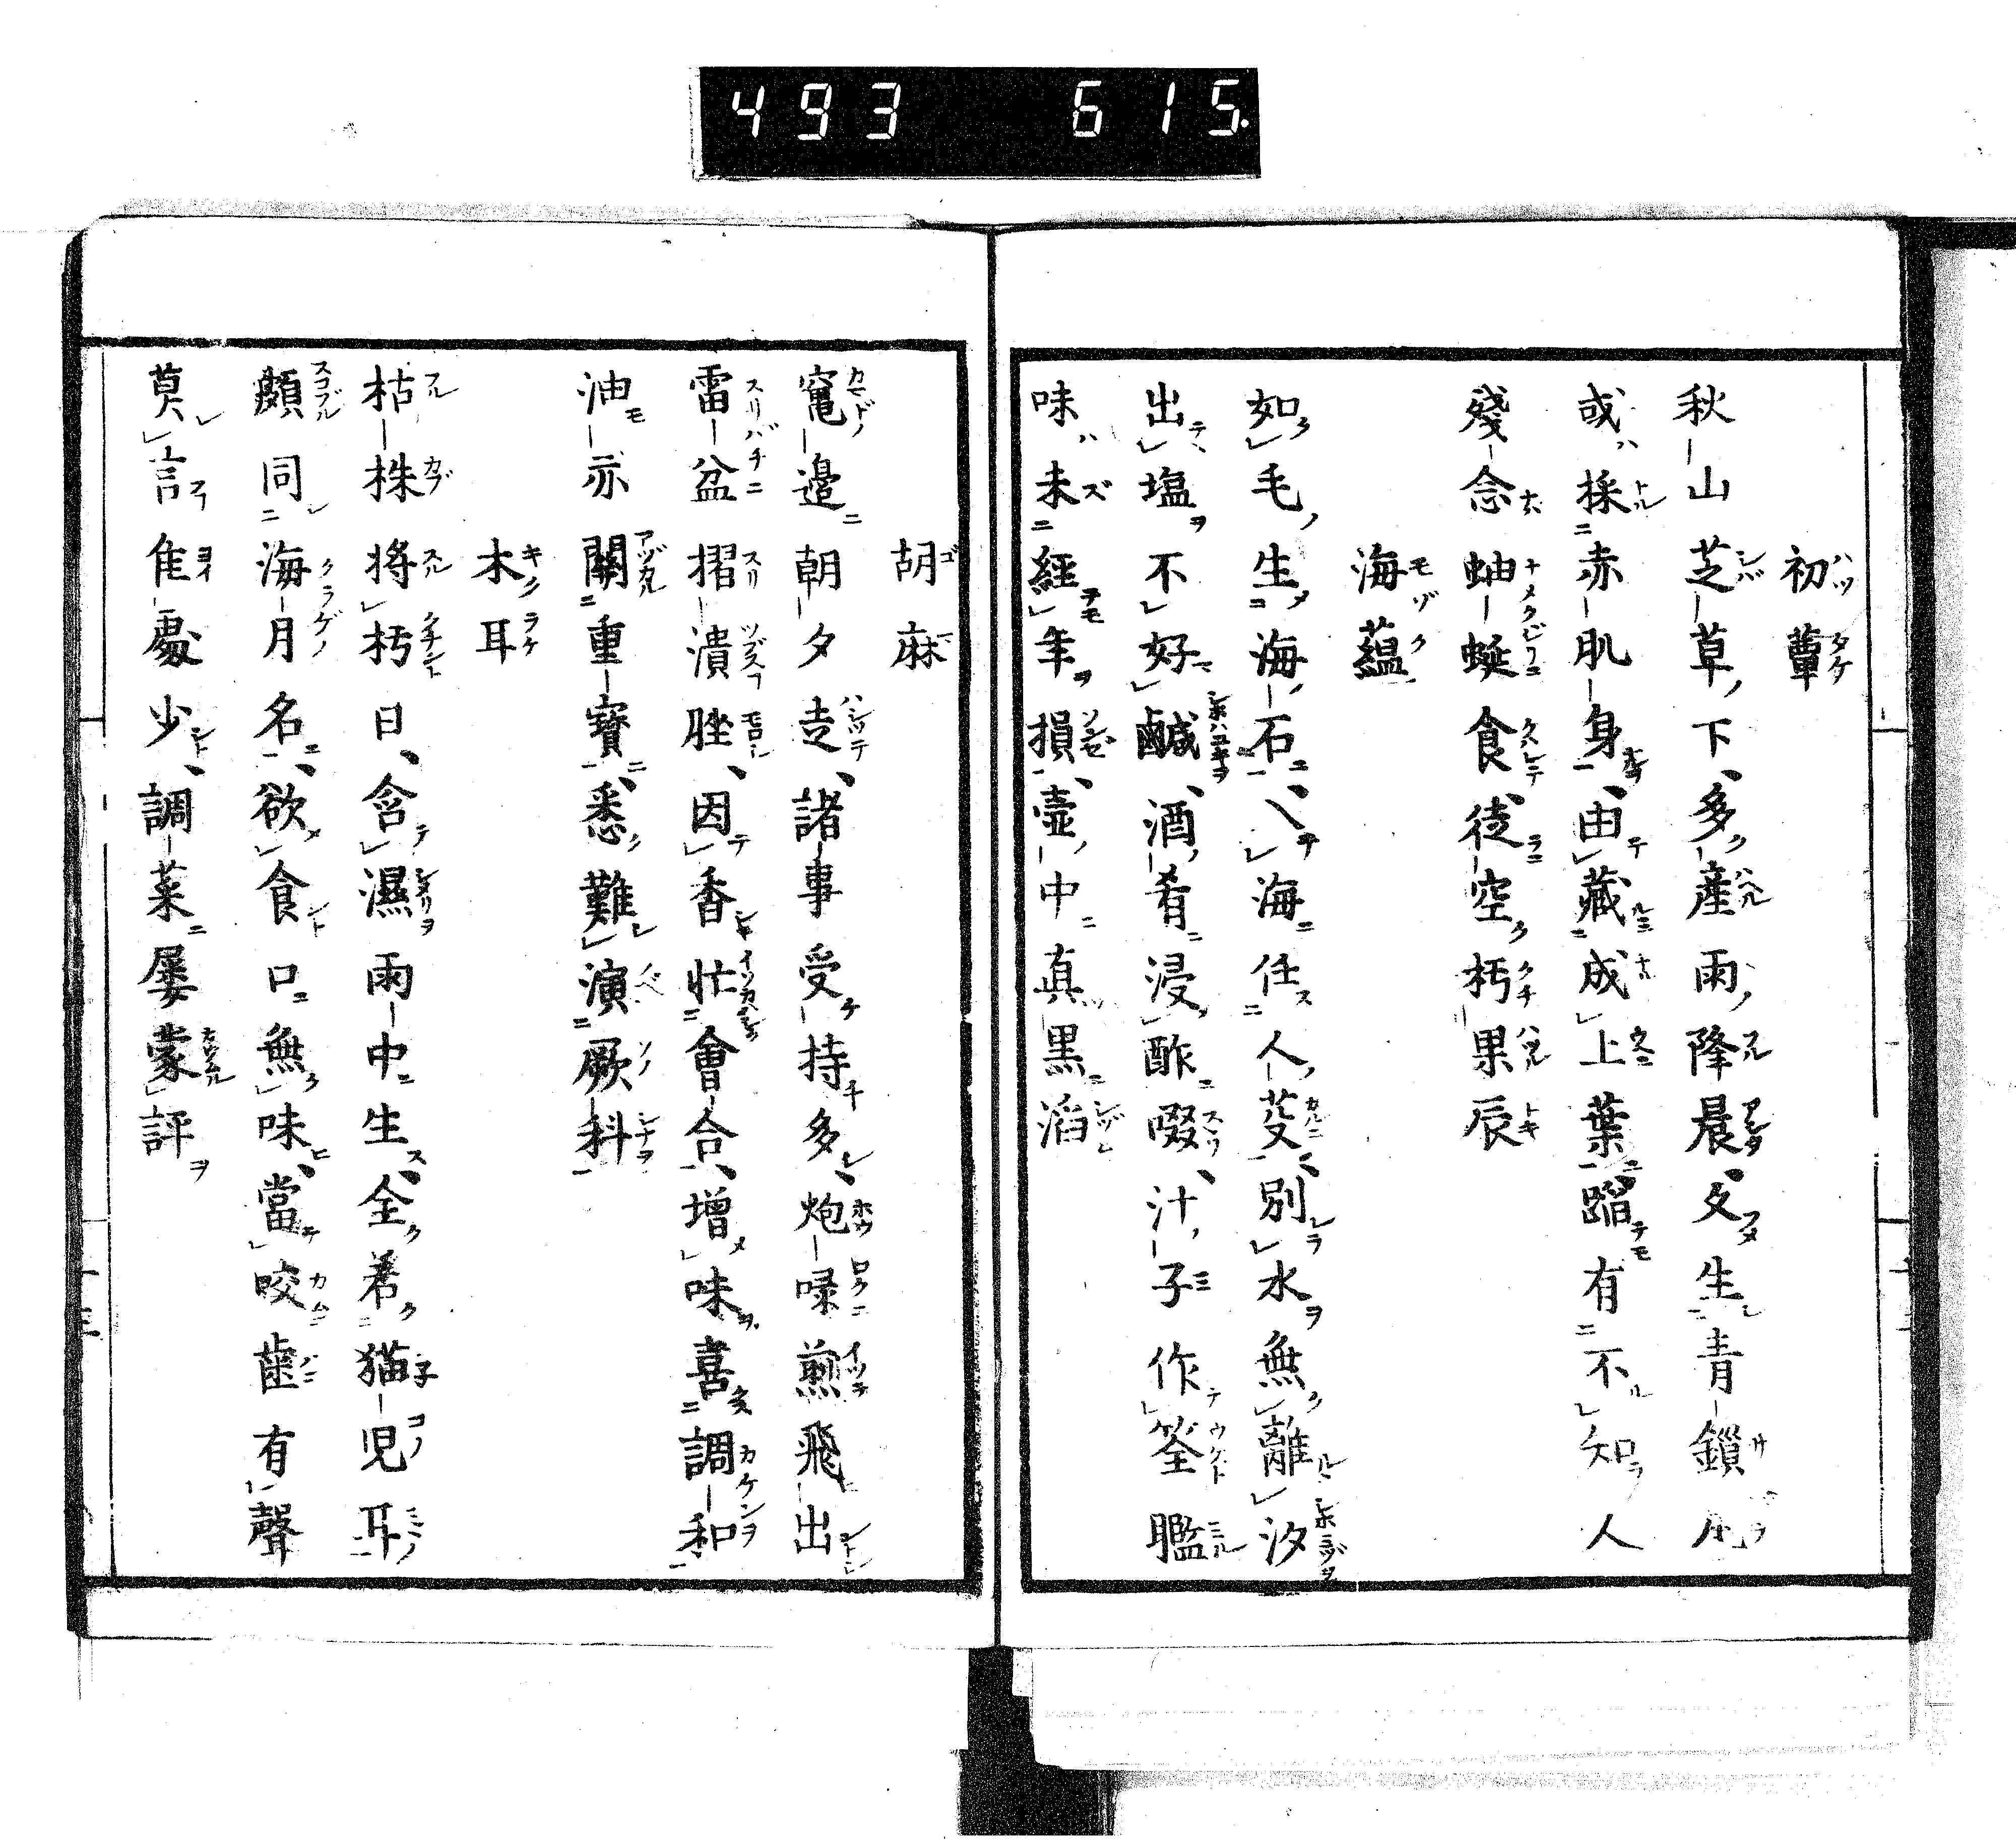 493 615.
初蕈
秋山芝草下多産雨降晨夕生青鎖
或採赤肌身由藏成上葉蹈有不知人
殘念蚰蜒食徒空朽果辰
海蘊
如毛生海石入海任人芟別水無離汐
出塩不好鹹酒肴浸酢啜汁子作筌
味未經年損壷中真黒滔
胡麻
竃邉朝夕走諸事受持多炮碌煎飛出
雷盆摺潰脞因香忙會合增味喜調和
油亦關重寳悉難演厥科
木耳
枯株将朽日含濕雨中生全着猫児耳
頗同海月名欲食口無味當咬歯有聲
莫言隹處少調菜屢蒙評